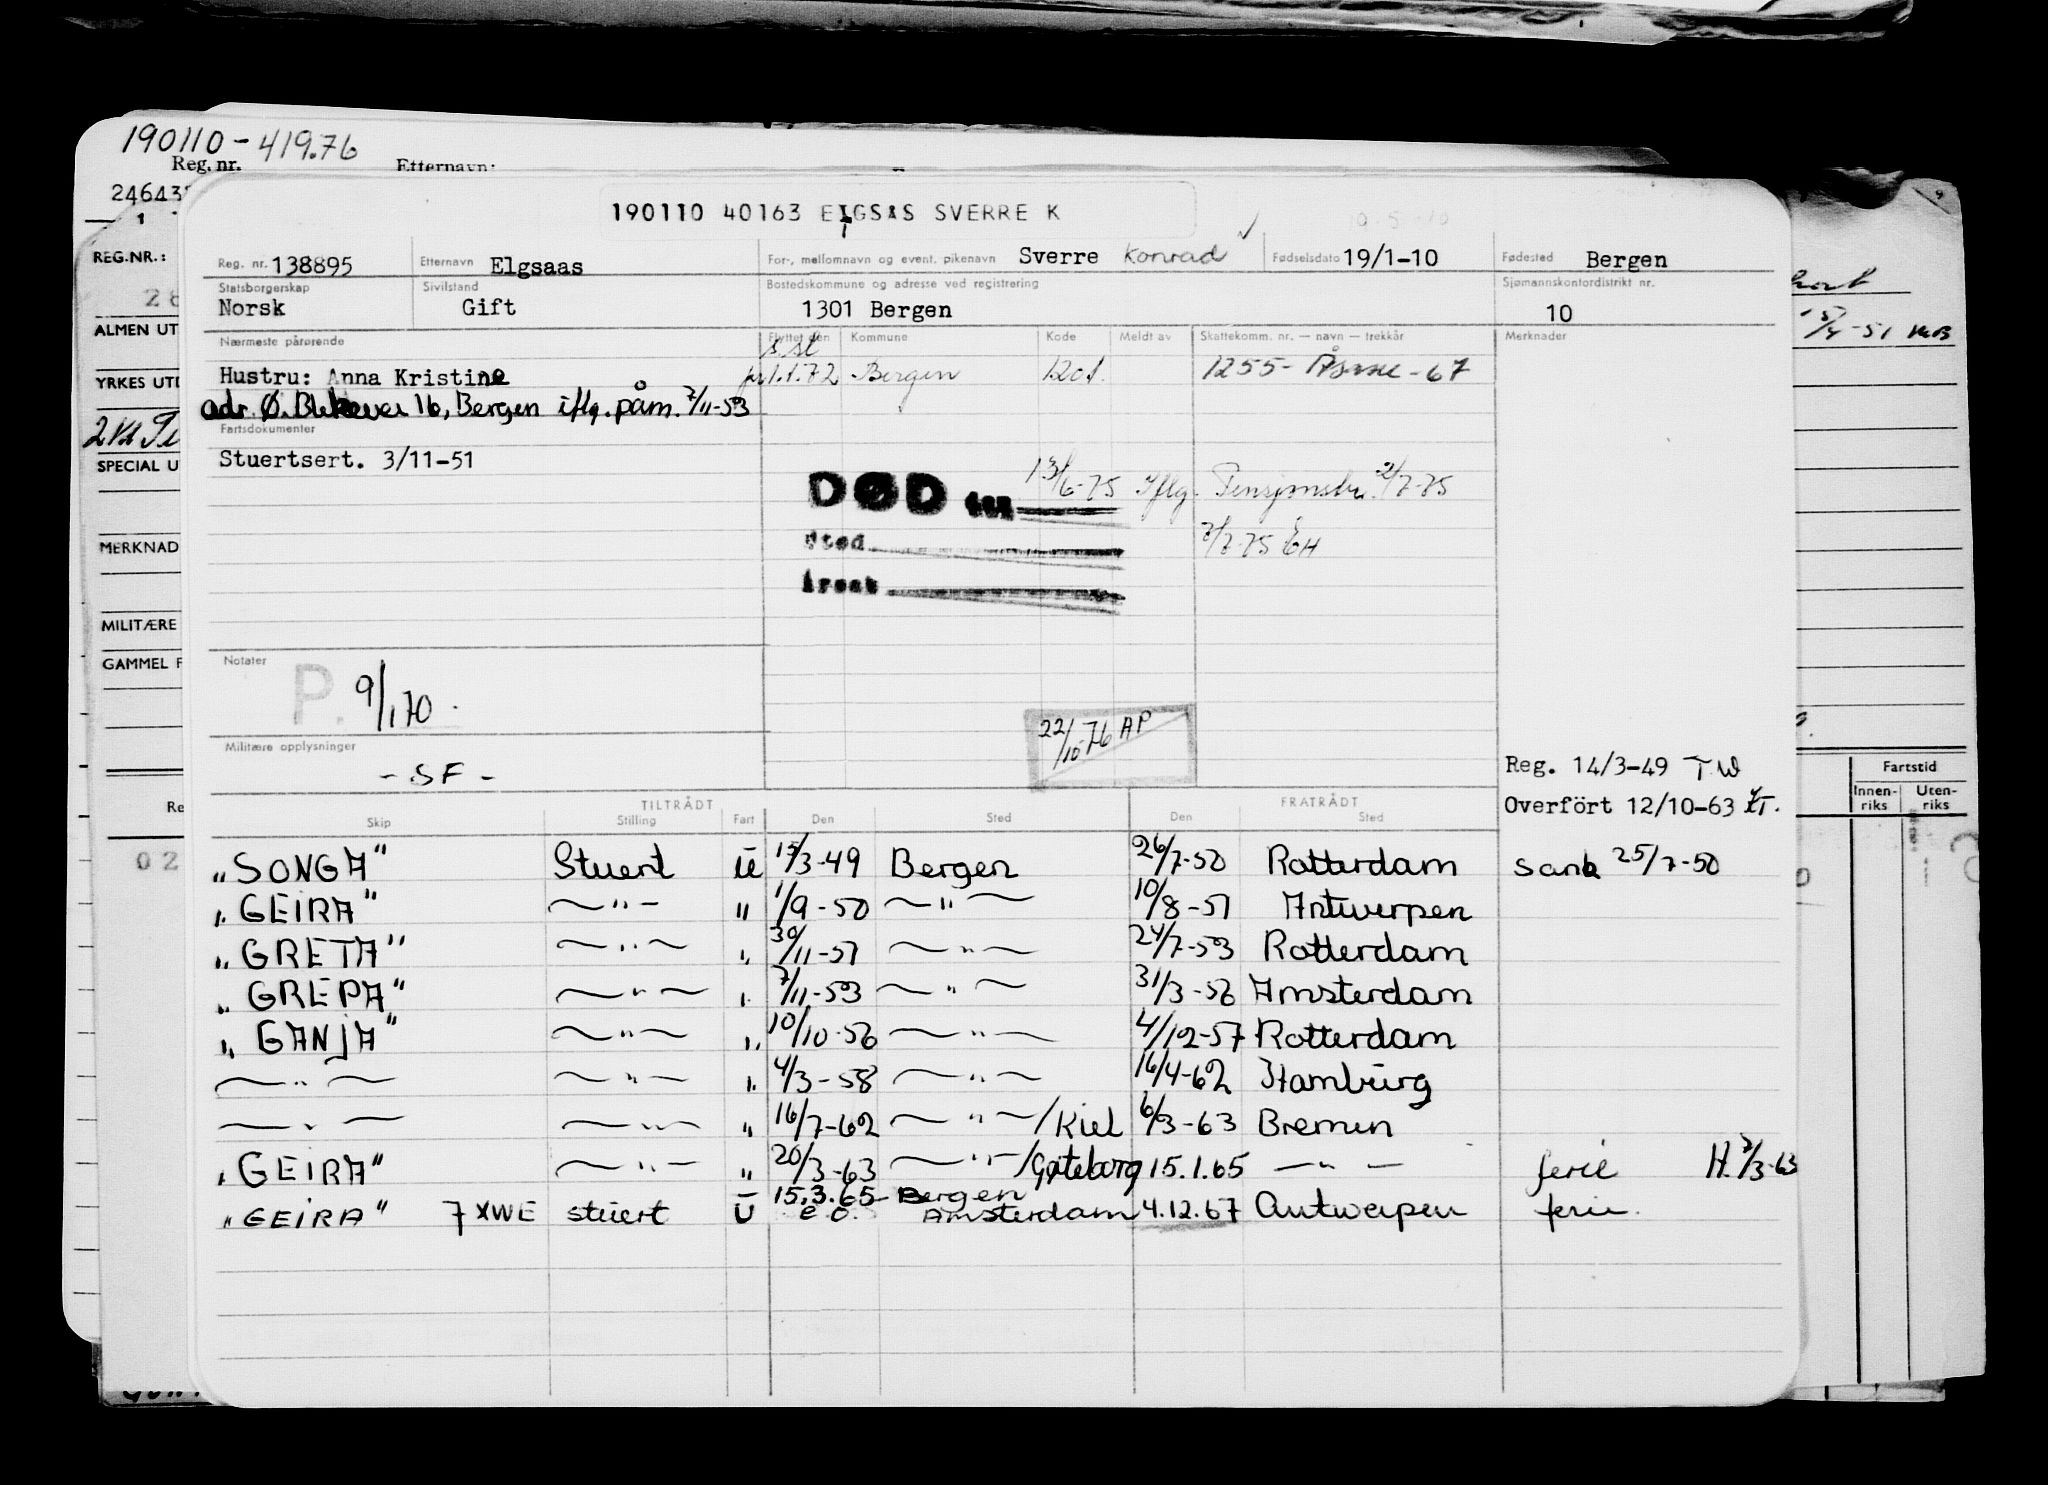 190110 - 419.76
Reg. nr. Etternavn:
190110 40163 ELGSAS SVERRE K
Reg. nr. 138895 Etternavn Elgsaas For-, mellomnavn og event. pikenavn Sverre Konrad Fødselsdato 19/1-10 Fødested Bergen
Statsborgerskap Sivilstand Bostedskommune og adresse ved registrering Sjømannskontordistrikt nr.
Norsk Gift 1301 Bergen 10
Nærmeste pårørende Flyttet den Kommune Kode Meldt av Skattekomm. nr. — navn — trekkår Merknader
s.st
Hustru: Anna Kristine 1.1.72 Bergen 1201. 1255- Åsane -67
adr. Ø. Blekevei 16, Bergen iflg. påm. 7/11-53
Fartsdokumenter
Stuertsert. 3/11-51
DØD den 13/6-75 Iflg. Pensjonstr. 2/7-75
Sted 2/7-75 EH
Årsak
Notater
P. 9/1 70.
22/10-76 AP
Militære opplysninger
- SF -
Reg. 14/3-49 TW
Overfört 12/10-63
TILTRÅDT FRATRÅDT
Skip Stilling Fart Den Sted Den Sted
„SONGA" Stuert U 15/3-49 Bergen 26/7-50 Rotterdam sank 25/7-50
„GEIRA" —"— " 1/9-50 —"— 10/8-51 Antwerpen
„GRETA" —"— " 30/11-51 —"— 24/7-53 Rotterdam
„GREPA" —"— " 7/11-53 —"— 31/3-56 Amsterdam
„GANJA" —"— " 10/10-56 —"— 4/12-57 Rotterdam
—"— —"— " 4/3-58 —"— 16/4-62 Hamburg
—"— —"— " 16/7-62 —"— /Kiel 6/3-63 Bremen
„GEIRA" —"— " 20/3-63 —"— /Gøteborg 15.1.65 —"— ferie H. 7/3-63
„GEIRA" 7 XWE stuert U 15.3.65 Bergen
e.o. Amsterdam 4.12.67 Antwerpen ferie.
REG.NR.:
ALMEN UT
YRKES UTD
SPECIAL U
MERKNAD
MILITÆRE
GAMMEL F
Fartstid
Innen-riks Uten-riks
02